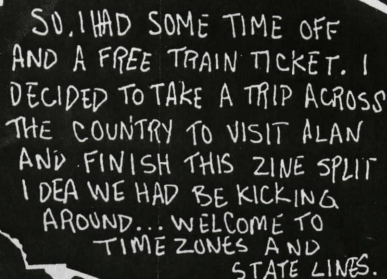 SO, I HAD SOME TIME OFF
AND A FREE TRAIN TICKET. I
DECIDED TO TAKE A TRIP ACROSS
THE COUNTRY TO VISIT ALAN
AND FINISH THIS ZINE SPLIT
IDEA WE HAD BE KICKING
AROUND... WELCOME TO
TIME ZONES AND
STATE LINES.